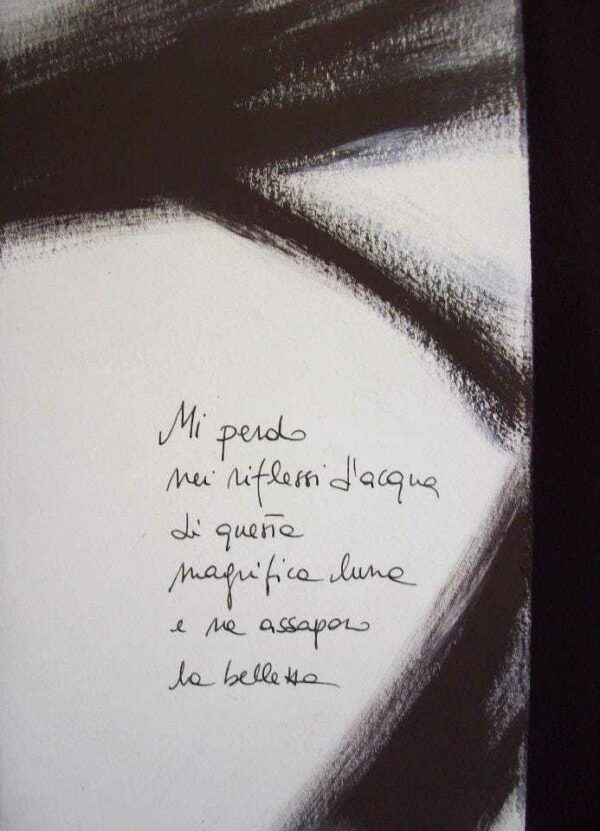 Mi perdo
nei riflessi d'acqua
di questa
magnifica luna
e ne assaporo
la bellezza